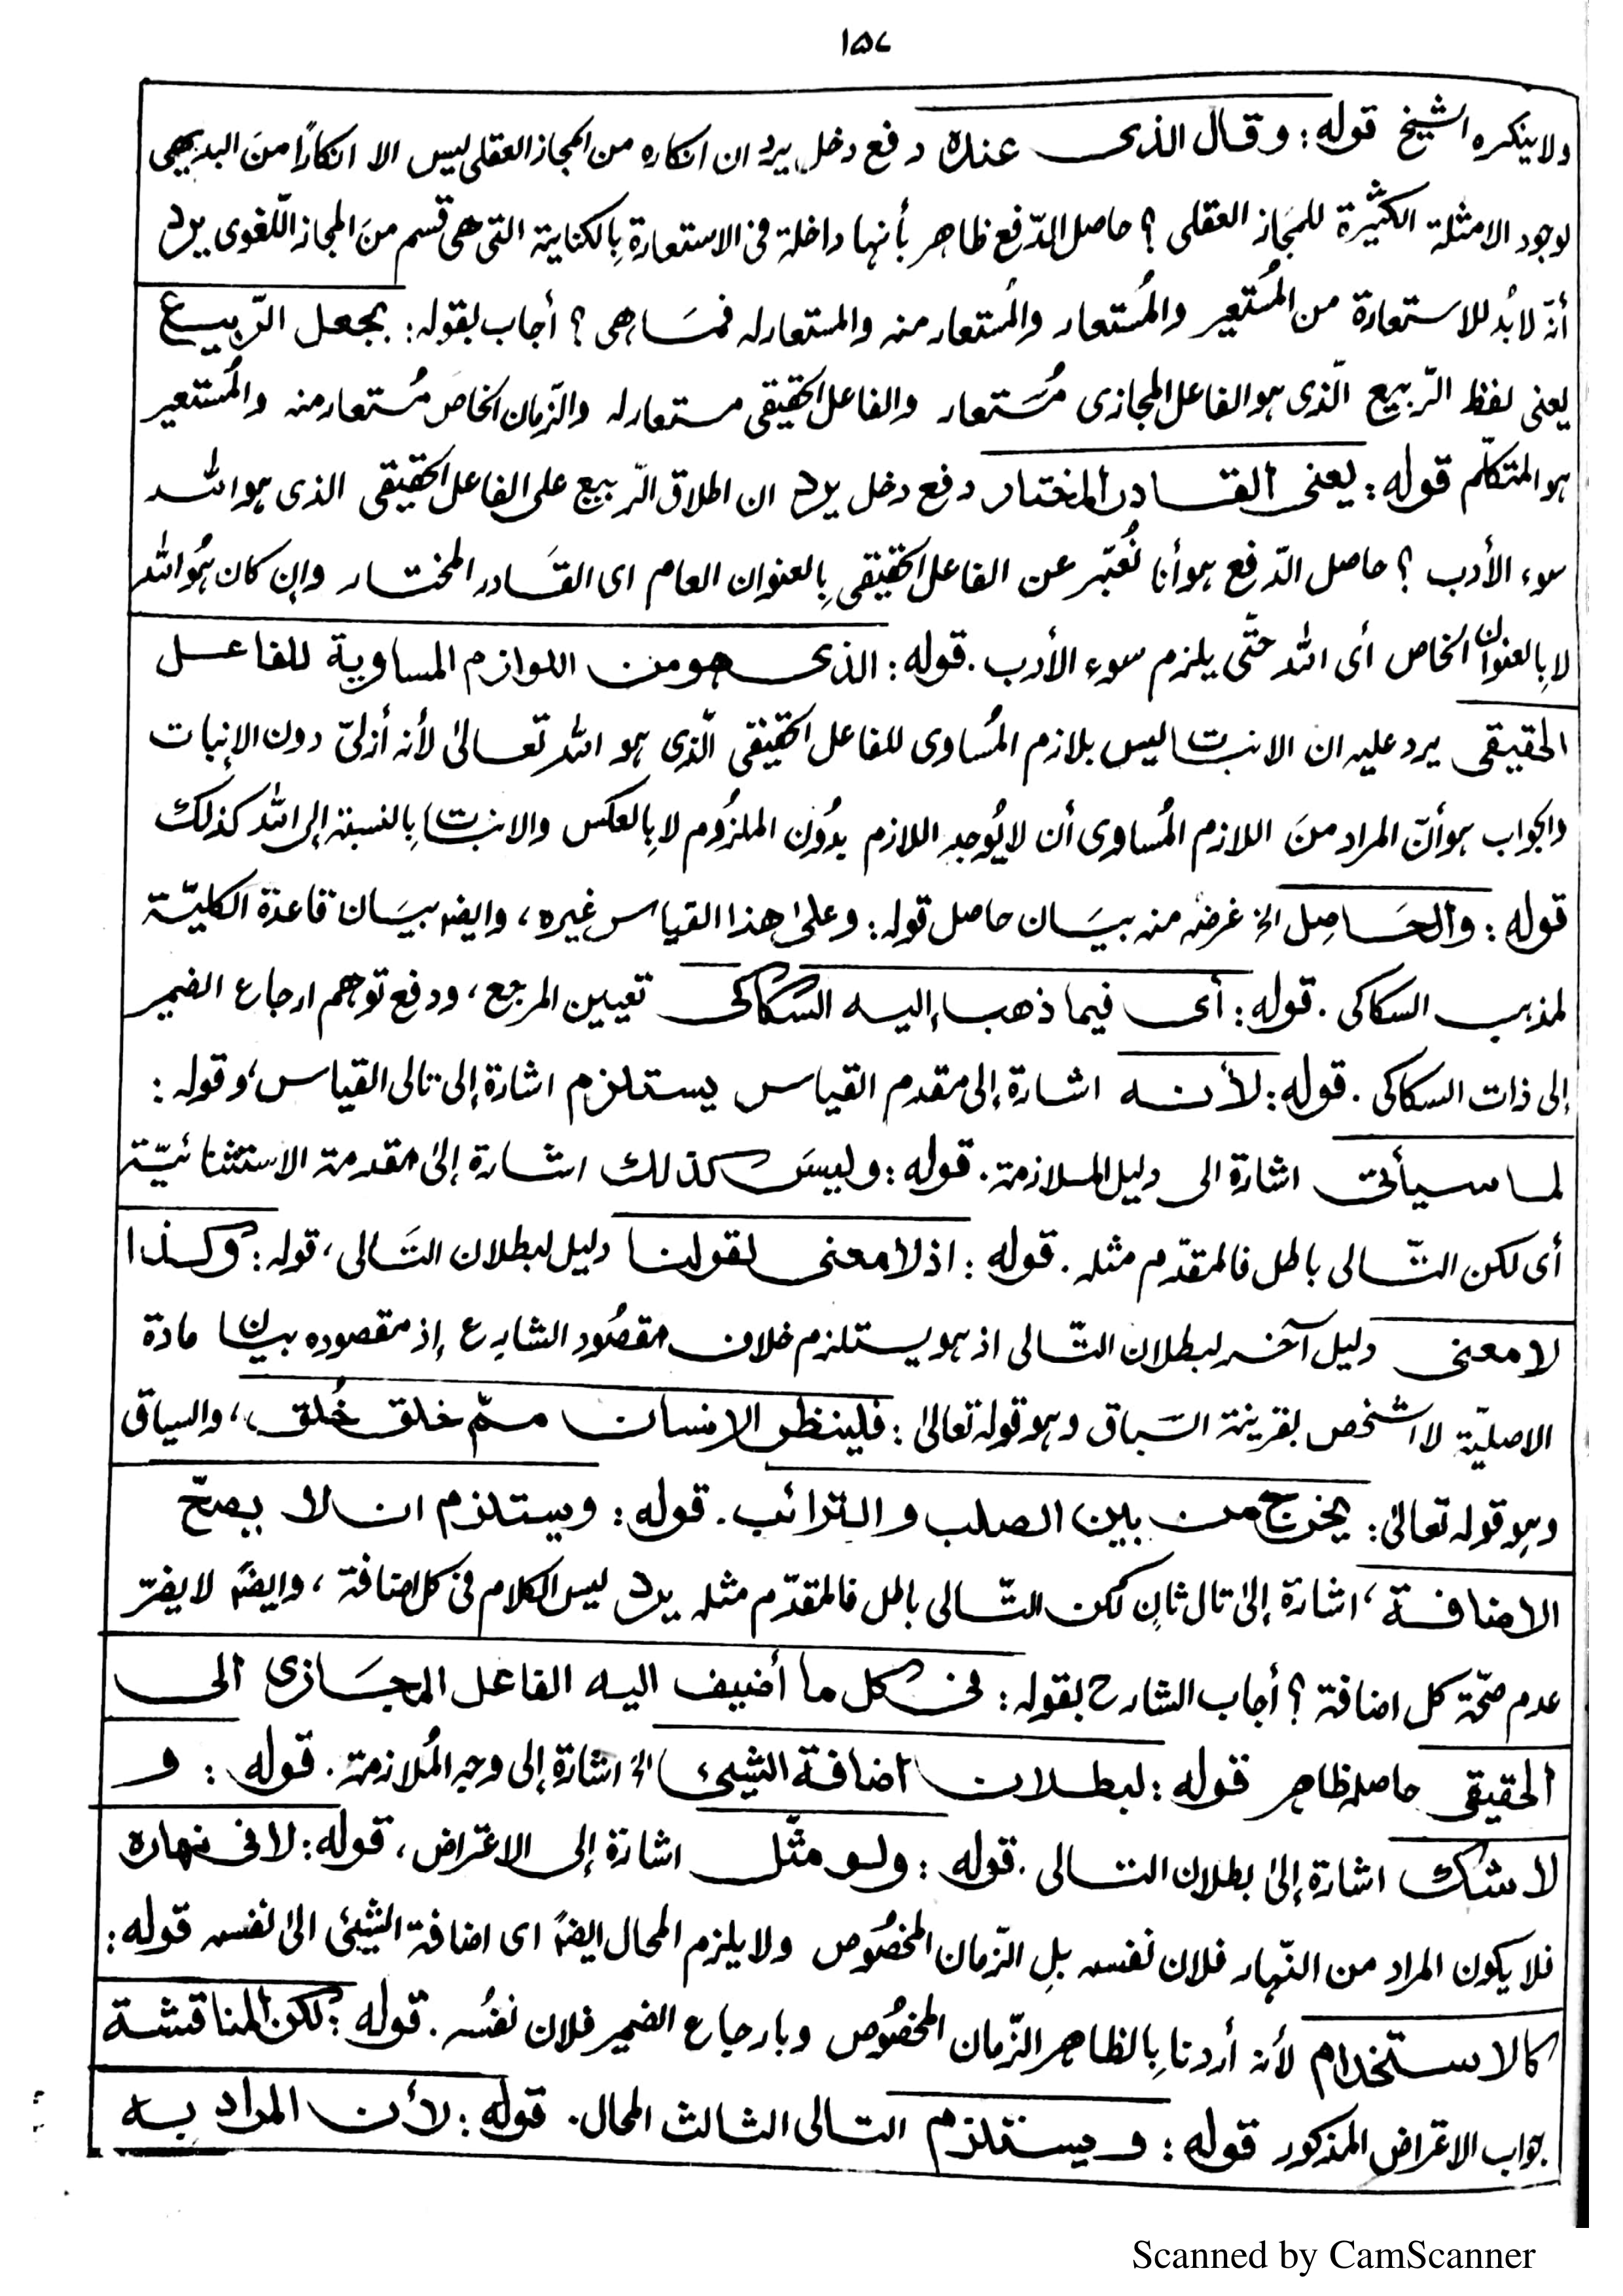 ١٥٧
ولاينكره الشيخ قوله: وقال الذى عنده دفع دخل يرد ان انكاره من المجاز العقلى ليس الا انكارًا منَ البديهى
لوجود الامثلة الكثيرة للمجَاز العقلى ؟ حاصل الدّفع ظاهر بأنها داخلة فى الاستعارة بِالكناية التى هى قسم منَ المجاز اللّغوى يرد
أنّه لابُد للاستعارة من المُستعير والمُستعار والمُستعار منه والمستعار له فمَا هى ؟ أجاب بقوله: بجعل الرّبيع
يعنى لفظ الرّبيع الّذى هو الفاعل المجازى مُستعار والفاعل الحقيقى مستعار له والزّمان الخاص مُستعار منه والمُستعير
هو المتكلّم قوله: يعنى القادر المختار دفع دخل يرد ان اطلاق الرّبيع على الفاعل الحقيقى الذى هو الله
سوء الأدب ؟ حاصل الدّفع هو أنا نُعبّر عن الفاعل الحقيقى بِالعنوان العام اى القَادر المختار وإن كان هُو الله
لا بِالعنوان الخاص أى الله حتّى يلزم سوء الأدب. قوله: الذى هو من اللوازم المساوية للفاعل
الحقيقى يرد عليه ان الانبات ليس بلازم المُساوى للفاعل الحقيقى الّذى هو الله تعالىٰ لأنه أزلىّ دون الإنبات
والجواب هو أنّ المراد منَ اللازم المُساوى أن لا يُوجد اللازم بدُون الملزُوم لا بِالعكس والانبات بِالنسبة إلى الله كذلك
قوله: والحَاصِل الخ غرضه منه بيَان حاصل قوله: وعلىٰ هذا القياس غيره، وايضہ بيَان قاعدة الكليّة
لمذهب السكاكى. قوله: أى فيما ذهب إليه السكاكى تعيين المرجع، ودفع توهم ارجاع الضمير
إلى ذات السكاكى. قوله: لأنه اشارة إلى مقدم القياس يستلزم اشارة إلى تالى القياس، وقوله:
لما سيأتى اشارة الى دليل الملازمة. قوله: وليسَ كذلك اشارة إلىٰ مقدمة الاستثنائيّة
أى لكن التّالى باطل فالمقدّم مثله. قوله: اذ لامعنى لقولنا دليل لبطلان التَالى، قوله: وكذا
لا معنى دليل آخر لبطلان التّالى اذ هو يستلزم خلاف مقصُود الشارع إذ مقصوده بيان مادة
الاصليّة لا الشخص بقرينة السّباق وهو قوله تعالىٰ: فلينظر الانسان ممّ خلق خُلق، والسياق
وهو قوله تعالىٰ: يخرج من بين الصلب و الترائب. قوله: ويستلزم ان لا يصحّ
الاضافة، اشارة إلىٰ تال ثانٍ لكن التّالى باطل فالمقدّم مثله يرد ليس الكلام فى كل اضافة، وايضًہ لا يضرّ
عدم صحّة كل اضافة ؟ أجاب الشارح بقوله: فى كل ما أضيف اليه الفاعل المجَازى الى
الحقيقى حاصله ظاهر قوله: لبطلان اضافة الشيئ الخ اشارة إلى وجه المُلازمة. قوله: و
لا شك اشارة إلىٰ بطلان التالى. قوله: ولو مثّل اشارة إلى الاعتراض، قوله: لا فى نهاره
فلا يكون المراد من النّهار فلان نفسه بلِ الزّمان المخصُوص ولا يلزم المحال ايضًہ اى اضافة الشيئ الىٰ نفسه قوله:
كالاستخدام لأنه أردنا بِالظاهر الزّمان المخصُوص وبارجاع الضمير فلان نفسُه. قوله: لكن المناقشة
جواب الاعتراض المذكور قوله: ويستلزم التالى الثالث المحال. قوله: لأن المراد به
Scanned by CamScanner